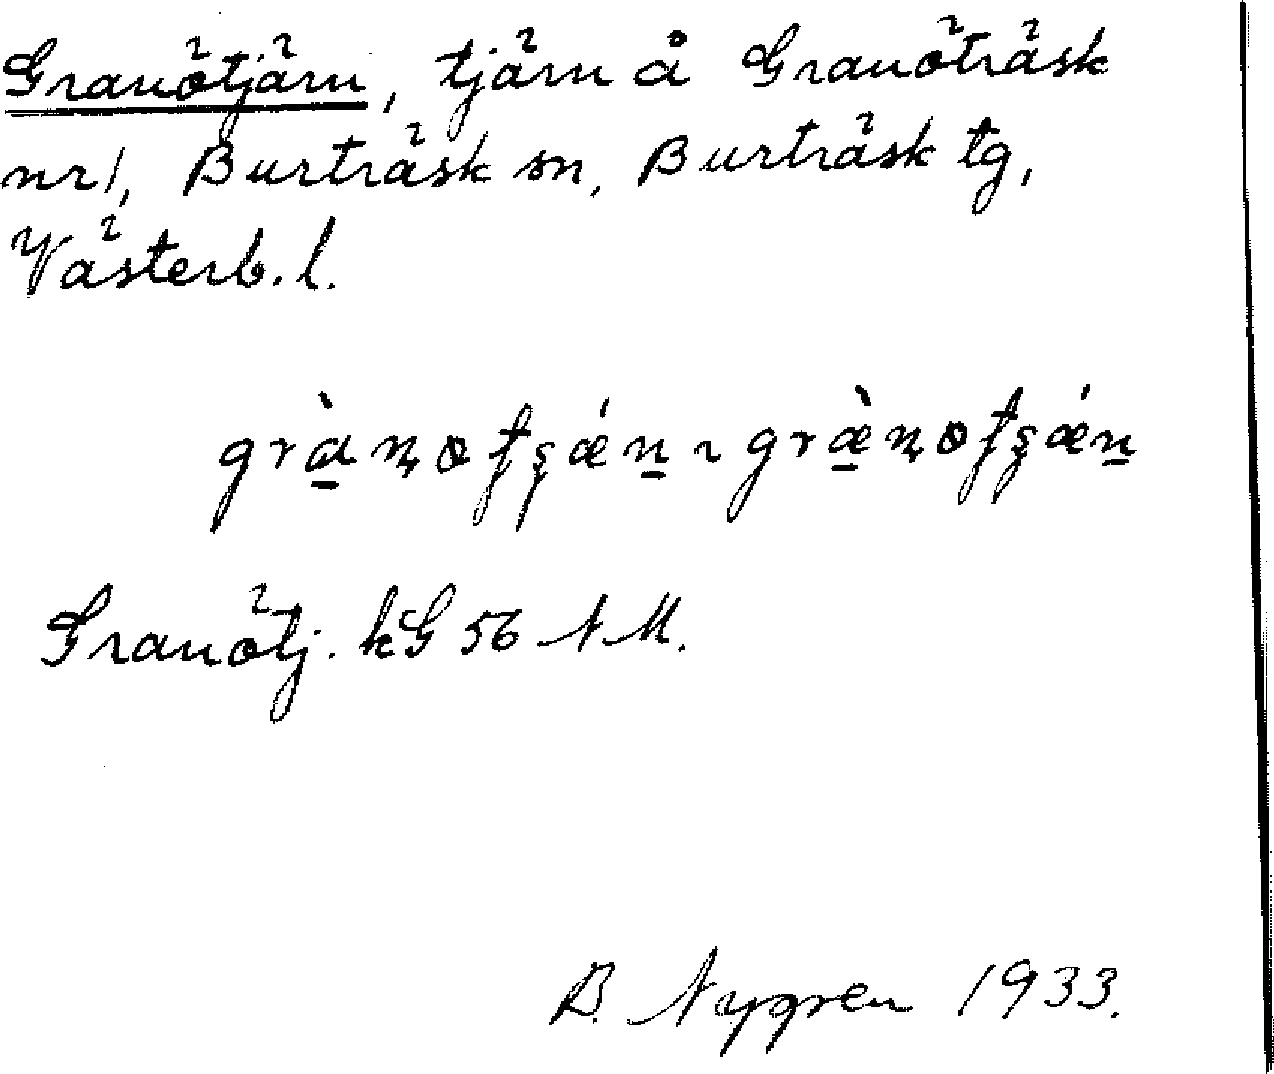 Granötjärn, tjärn å Granöträsk
nr 1, Burträsk sn, Burträsk tg,
Västerb. l.
Granötj. kG 56 NM.
B. Nygren 1933.